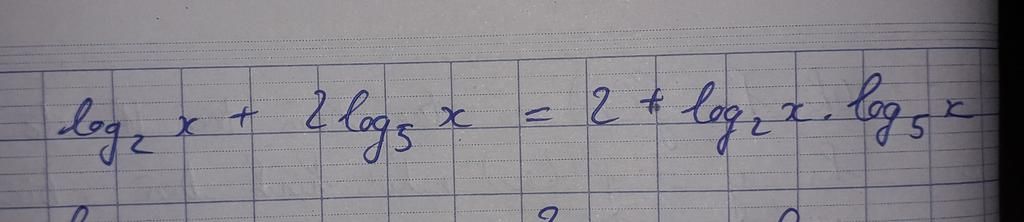 log₂ x + 2 log₅ x = 2 + log₂ x . log₅ x